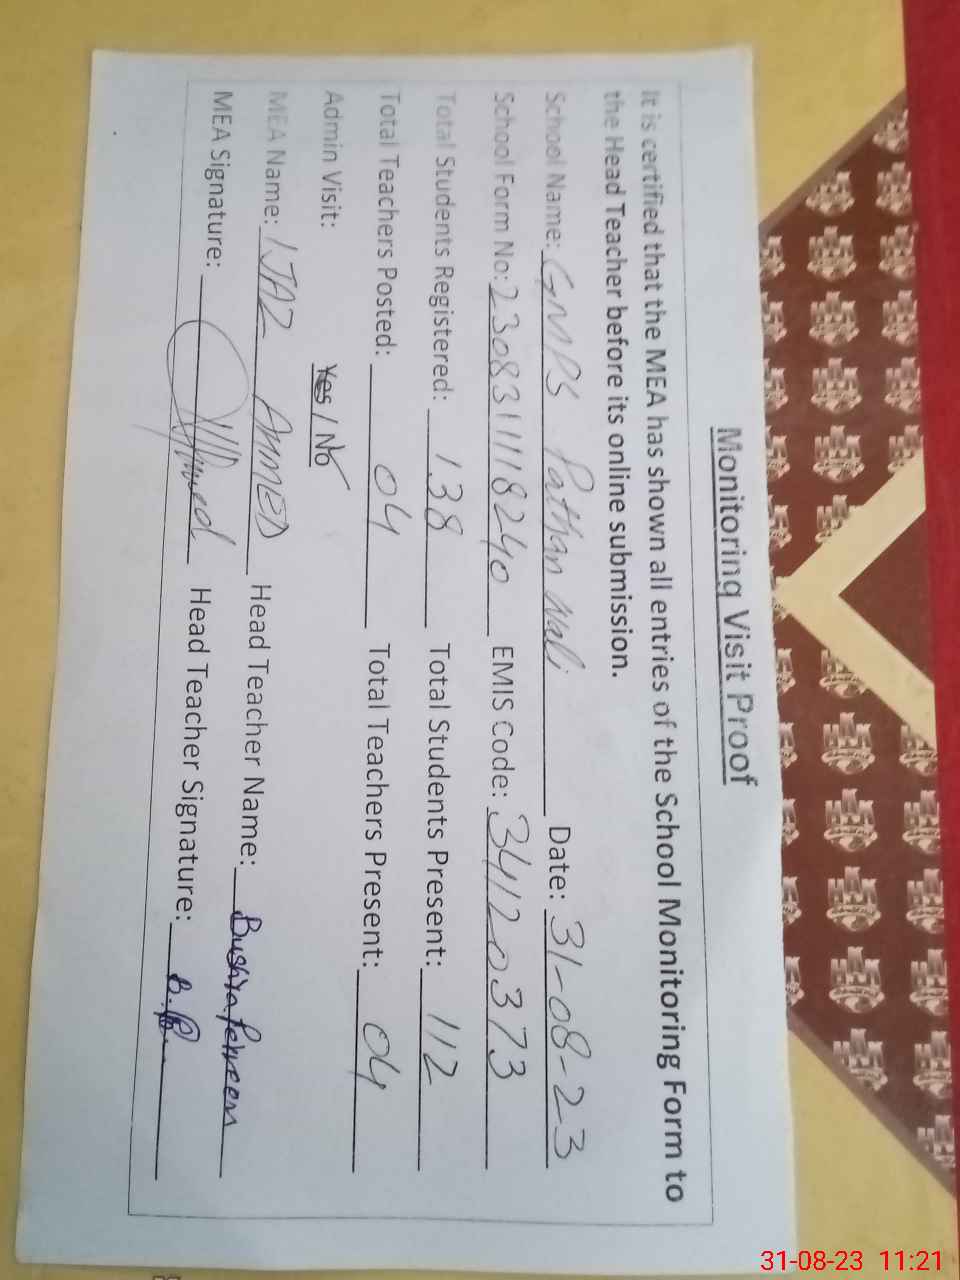 Monitoring Visit Proof
It is certified that the MEA has shown all entries of the School Monitoring Form to
the Head Teacher before its online submission.
School Name: GMPS Pathan Wali Date: 31-08-23
School Form No: 230831118240 EMIS Code: 34120373
Total Students Registered: 138 Total Students Present: 112
Total Teachers Posted: 04 Total Teachers Present: 04
Admin Visit: Yes / No
MEA Name: IJAZ AHMED Head Teacher Name: Bushra Perveen
MEA Signature: Ahmed Head Teacher Signature: B.P
31-08-23 11:21